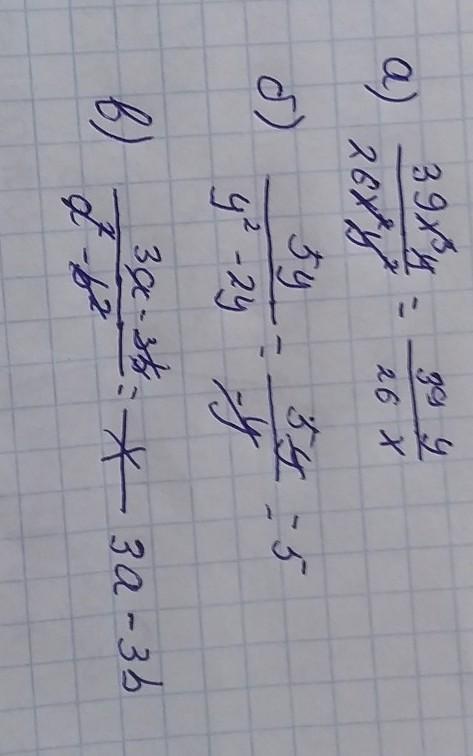 а) 39x³y / 26x²y² = 39 y / 26 x
б) 5y / y² - 2y = 5y / -y = 5
в) 3a - 3b / a² - b² = 3a - 3b